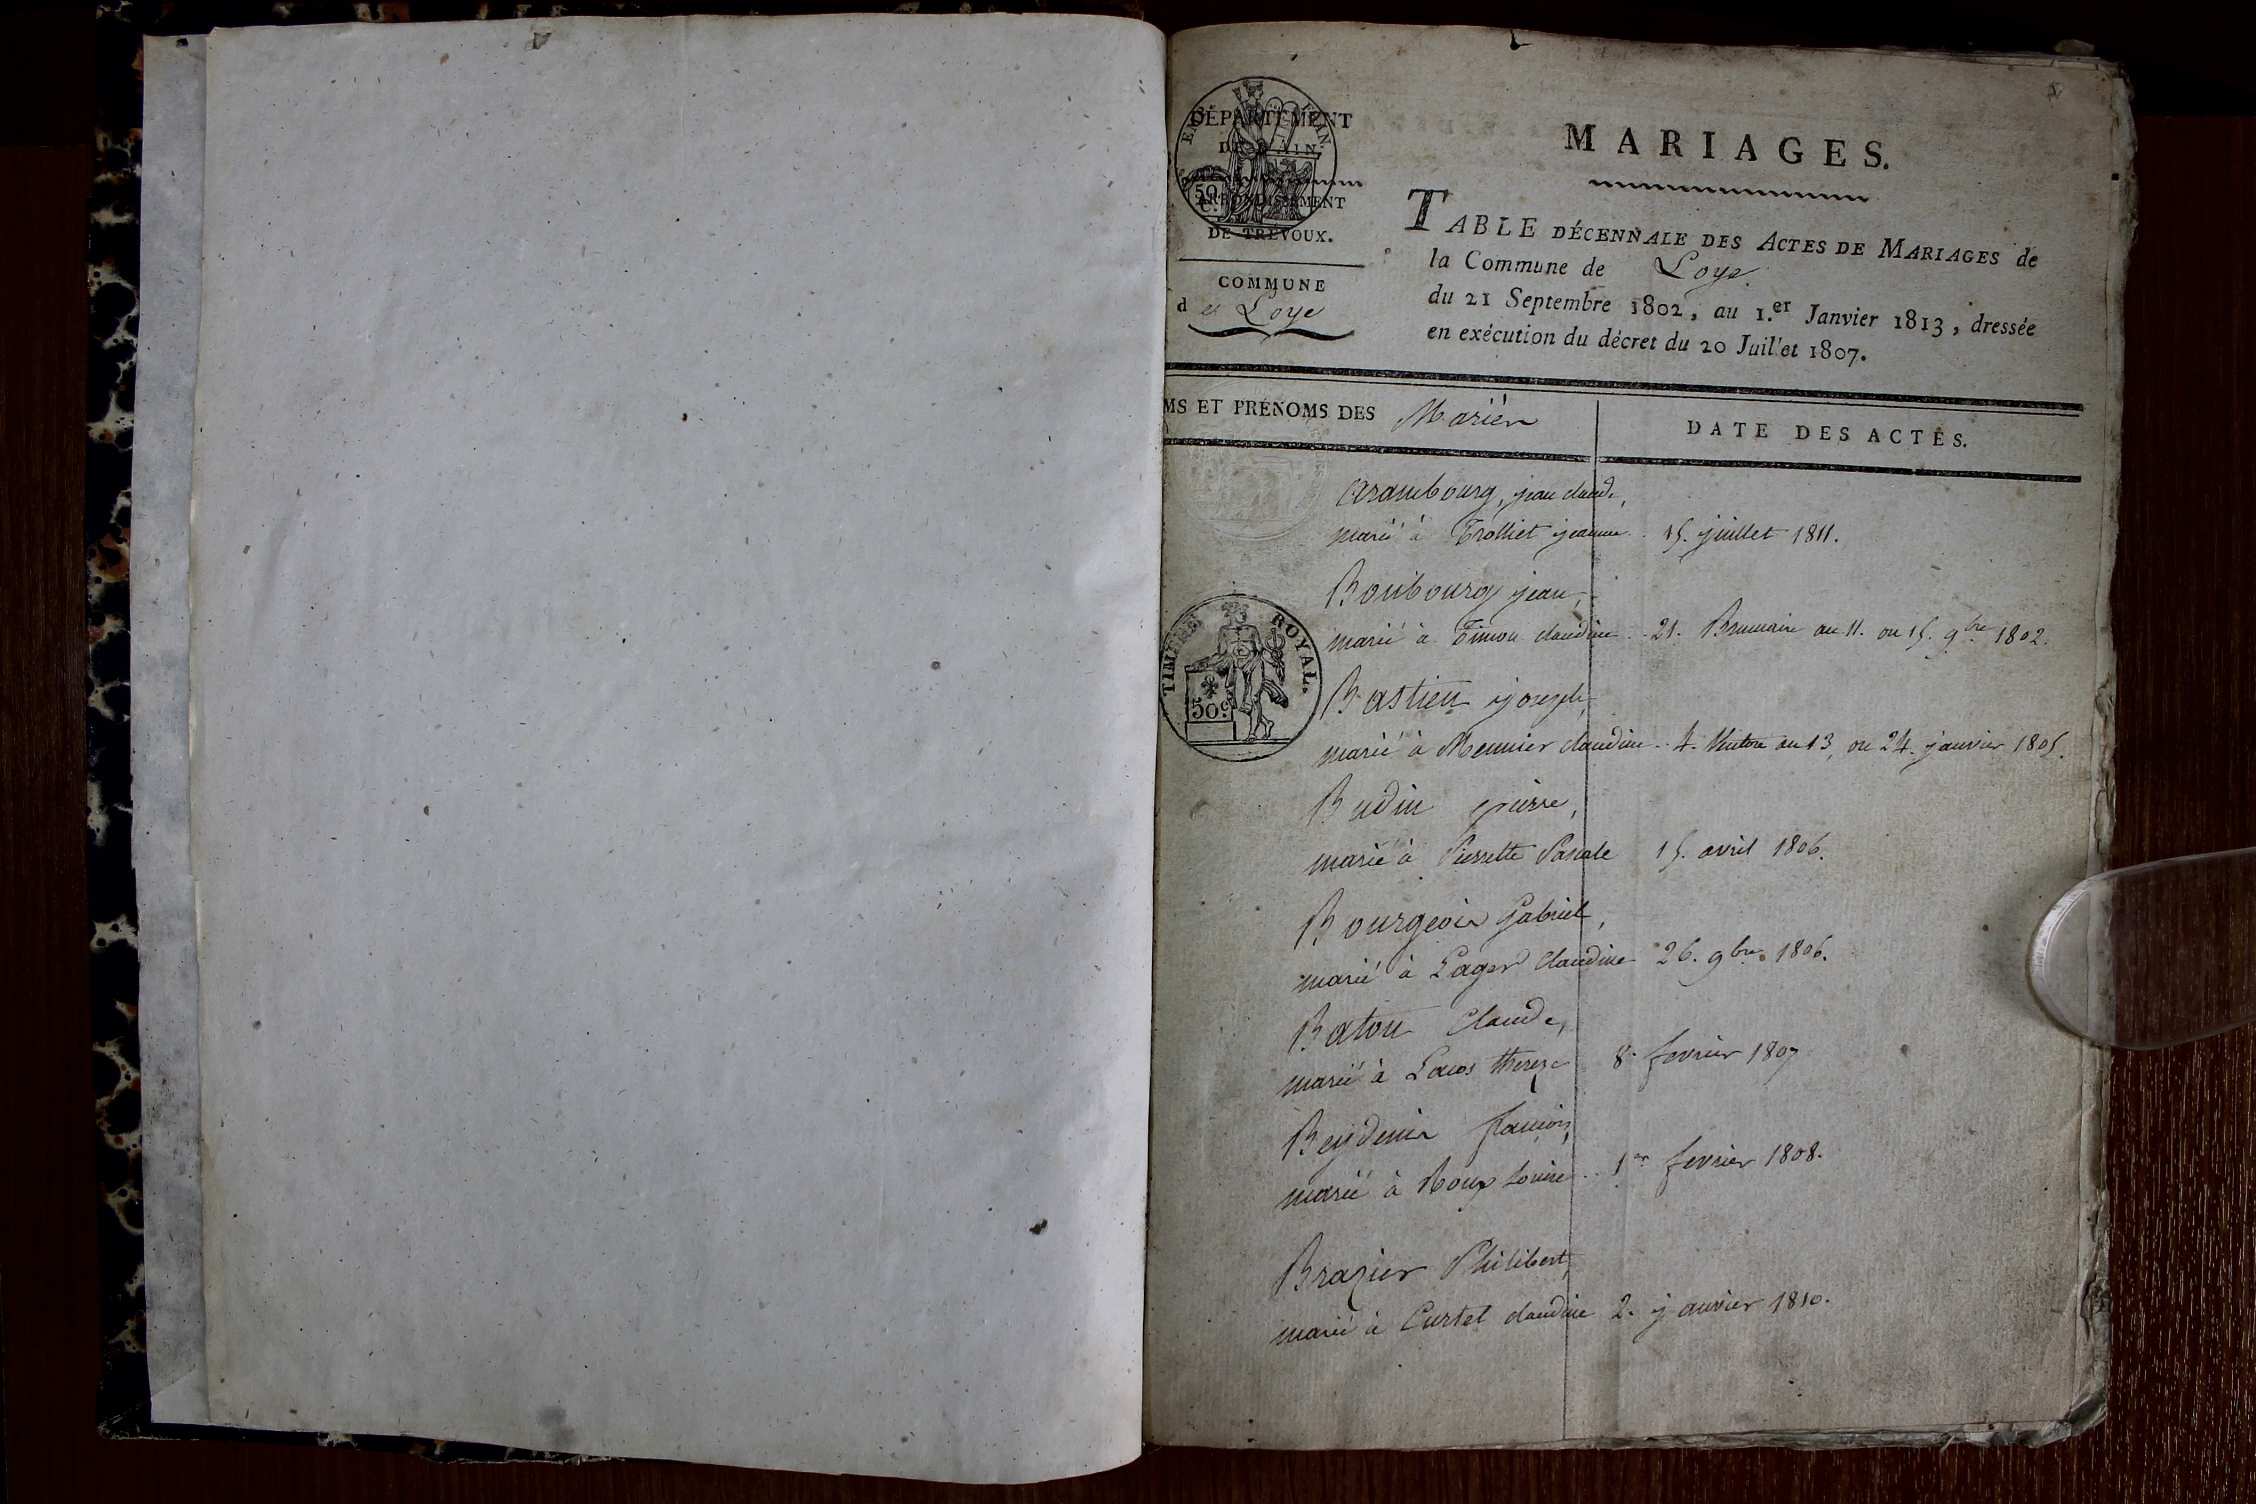 DÉPARTEMENT
DE L'AIN.
ARRONDISSEMENT
DE TRÉVOUX.
COMMUNE
de Loye
EMP. FRAN.
50 C.
MARIAGES.
TABLE DÉCENNALE DES ACTES DE MARIAGES de
la Commune de Loye
du 21 Septembre 1802, au 1.er Janvier 1813, dressée
en exécution du décret du 20 Juillet 1807.
MS ET PRÉNOMS DES Mariés
DATE DES ACTES.
Arambourg, jean claude,
marié à Trolliet jeanne. 15. juillet 1811.
Bonbourg jean,
marié à Timon claudine .. 21. Brumaire an 11. ou 15. 9bre 1802.
TIMBRE ROYAL.
50c.
Bastien joseph,
marié à Meunier claudine .. 4. an 13, ou 24. janvier 1805.
Budin pierre,
marié à Pierrette Pascale 15. avril 1806.
Bourgeois Gabriel,
marié à claudine 26. 9bre 1806.
Baton Claude,
marié à thereze 8. fevrier 1807
françois,
marié à Roux Louise .. 1er fevrier 1808.
Brazier Philibert,
marié à Curtet claudine 2. janvier 1810.